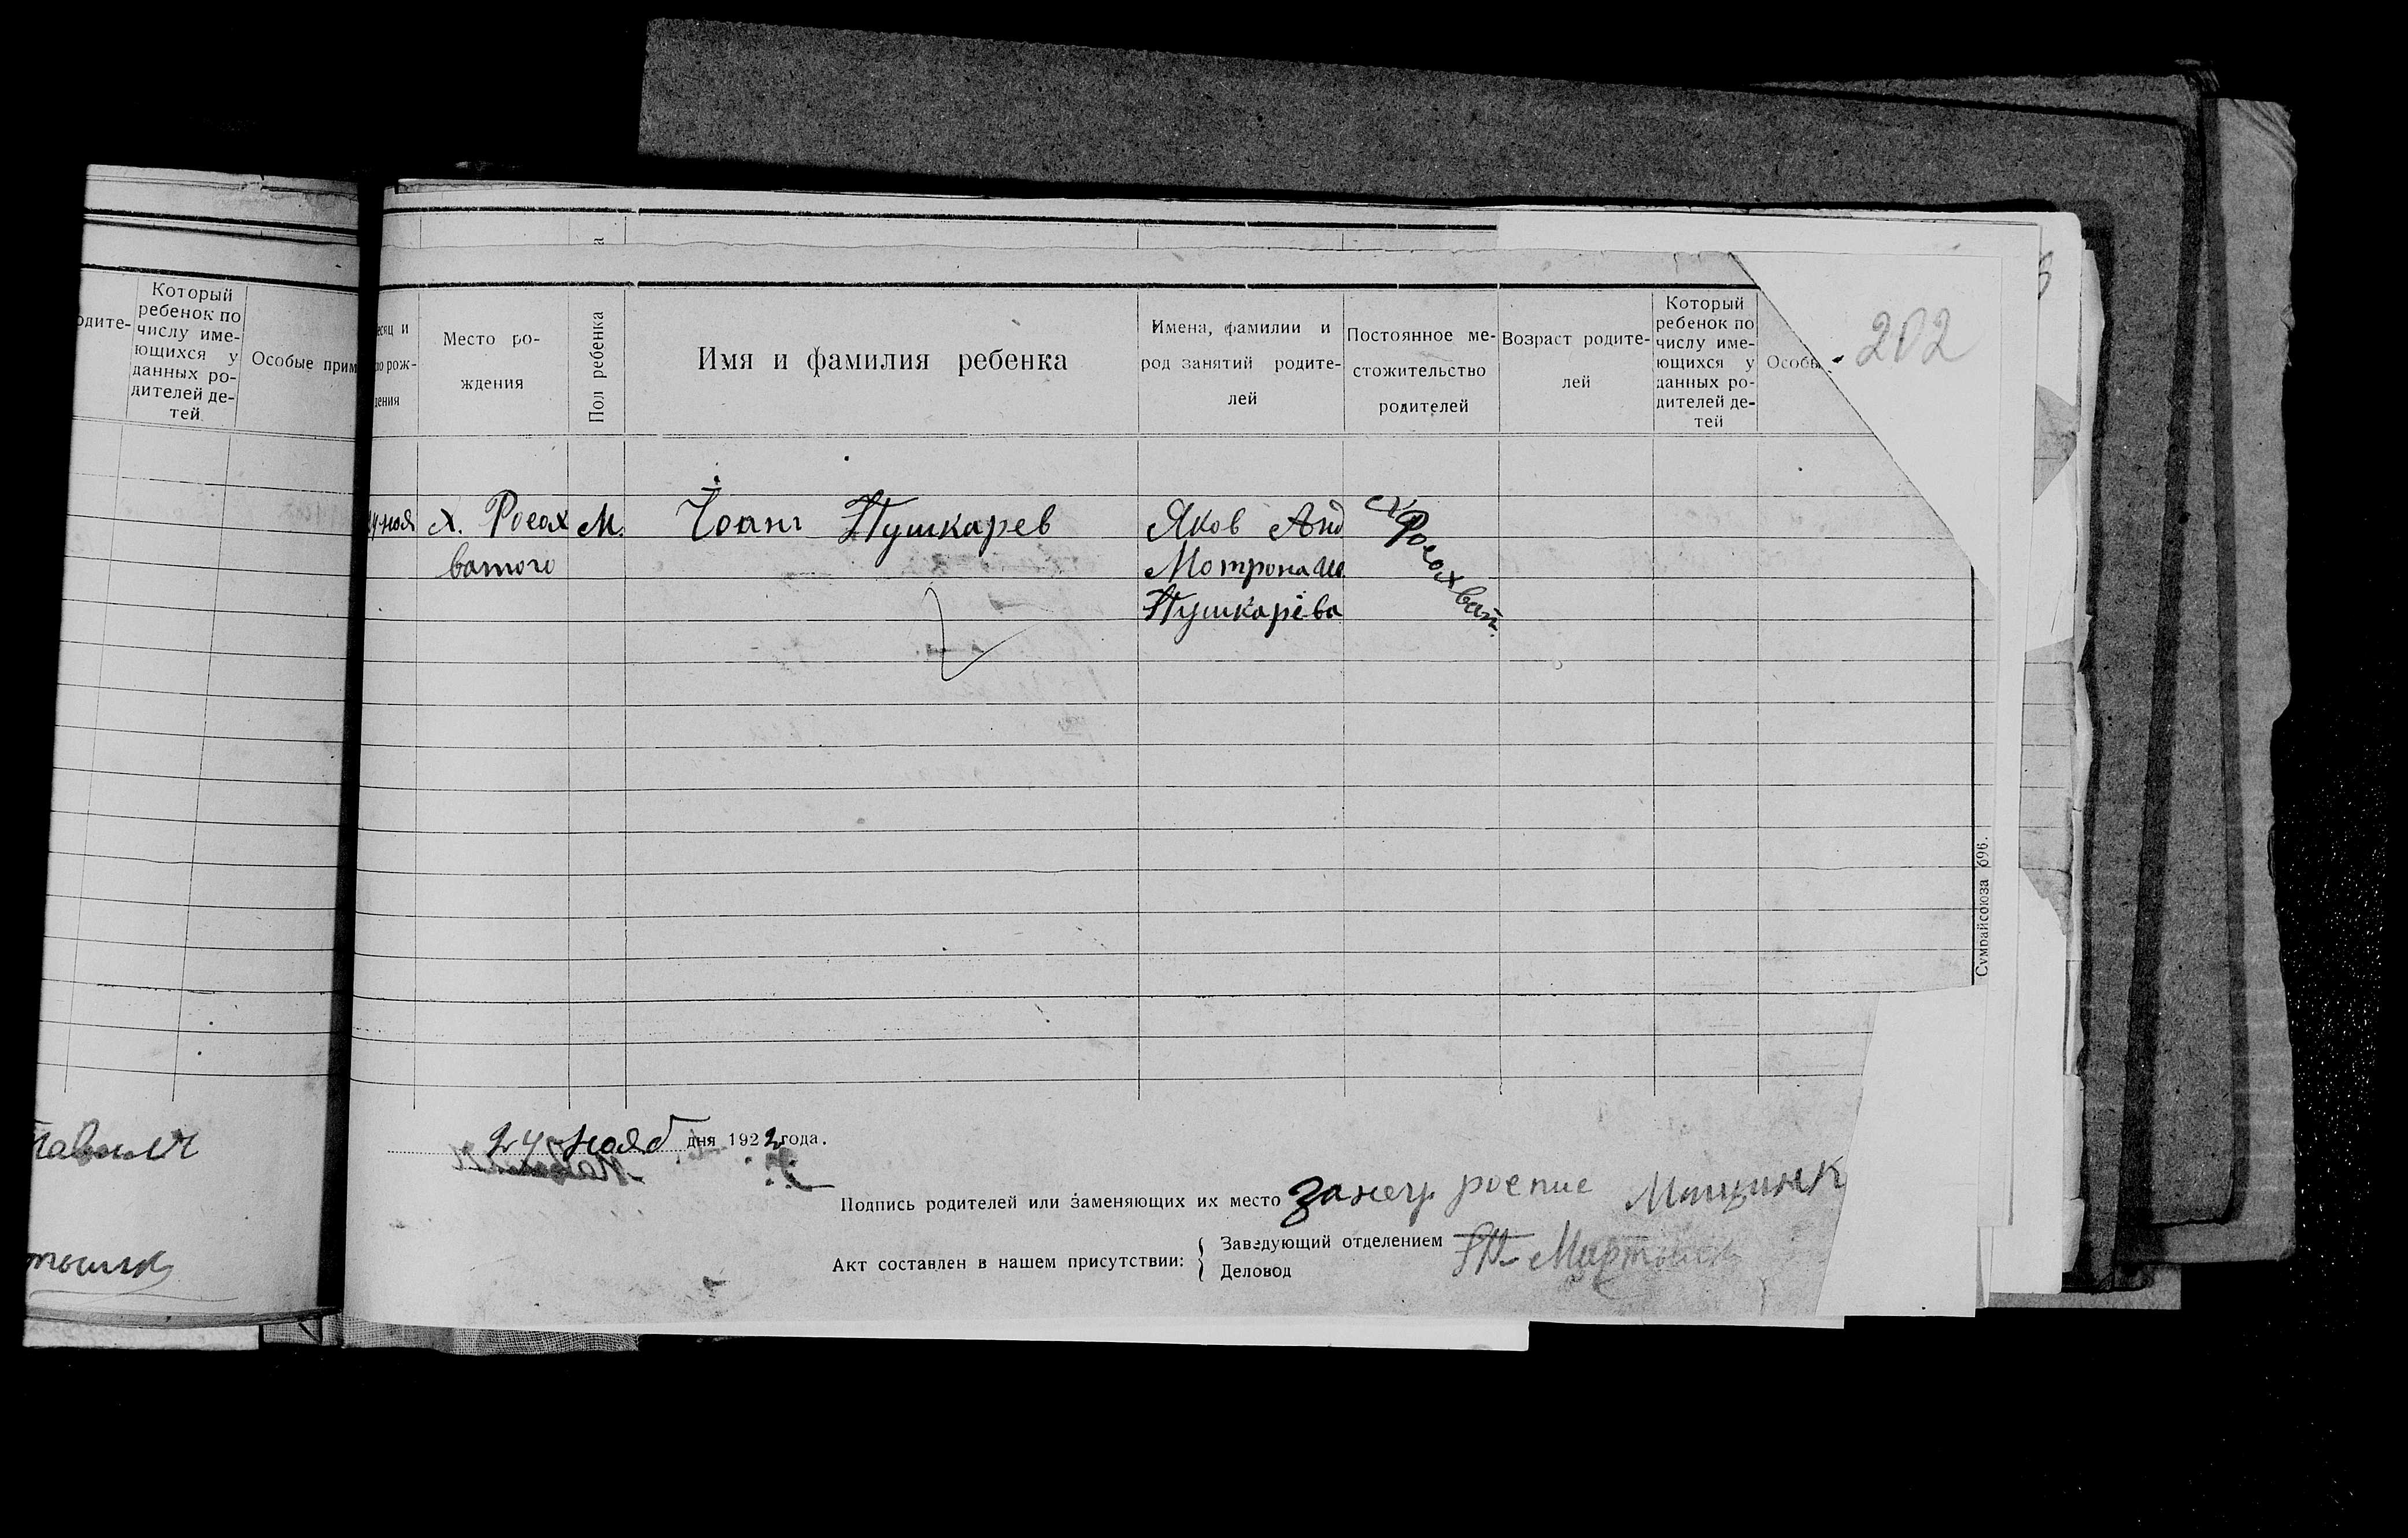 Который
ребенок по
числу име-
ющихся у
данных ро-
дителей де-
тей.
одите-
Особые прим
есяц и
ло рож-
дения
Место ро-
ждения
Пол ребенка
Имя и фамилия ребенка
Имена, фамилии и
род занятий родите-
лей
Постоянное ме-
стожительство
родителей
Возраст родите-
лей
Который
ребенок по
числу име-
ющихся у
данных ро-
дителей де-
тей
Особы
202
24 ноя
х. Росах
ватого
М.
Іоанн Пушкарев
Яков Анд
Мотрона
Пушкарева
х. Росохват.
24 нояб дня 1922 года.
Подпись родителей или заменяющих их место за негр роспис
Акт составлен в нашем присутствии:
Заведующий отделением
Деловод
Сумрайсоюза 696.